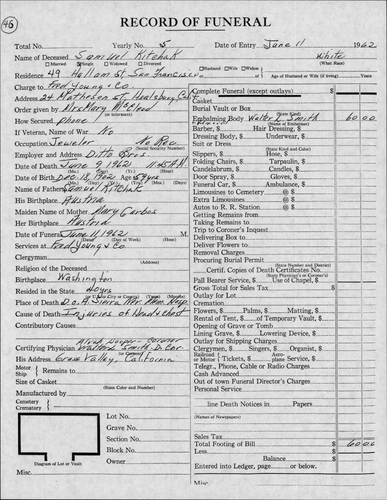 46
RECORD OF FUNERAL
Total No. Yearly No. 5 Date of Entry June 11 1962
Name of Deceased Samuel Kitchak White
Married Single Widowed Divorced Husband Wife Widow (What Race)
Residence 49 Hallam St San Francisco Age of Husband or Wife (if living) Years
Charge to Fred Young & Co.
Address 24 Matheson St Healsburg Cal
Order given by Mrs Mary
How Secured phone
If Veteran, Name of War No
Occupation Jeweler No Rec
(Social Security Number)
Employer and Address Ditto Bros.
Date of Death June 9, 1962 11:45 A M.
Date of Birth Dec. 18, 1902 Age 59 yrs
(Mo.) (Day) (Yr.) (Years) (Months) (Days)
Name of Father Samuel Kitchak
His Birthplace Austria
Maiden Name of Mother Mary Garbos
Her Birthplace Austria
Date of Funeral June 11, 1962 M.
Services at Fred Young & Co
Clergyman
Religion of the Deceased
Birthplace Washington
Resided in the State
Place of Death D.O.A. Sierra Nev. Mem. Hosp.
Cause of Death Injuries of Head & chest
Contributory Causes
Certifying Physician Walter Smith D. Cor.
His Address Grass Valley, California
Motor Ship Remains to
Size of Casket
(State Color and Number)
Manufactured by
Cemetery
Crematory
Lot No.
Grave No.
Section No.
Block No.
Owner
Diagram of Lot or Vault
Misc.
Complete Funeral (except outlays) $
Casket
(State Kind)
Burial Vault or Box
Embalming Body Walter Smith 60 00
(Name of Embalmer)
Barber, $ Hair Dressing, $
Dressing Body, $ Underwear, $
Suit or Dress
(State Kind and Color)
Slippers, $ Hose, $
Folding Chairs, $ Tarpaulin, $
Candelabrum, $ Candles, $
Door Spray, $ Gloves, $
Funeral Car, $ Ambulance, $
Limousines to Cemetery @ $
Extra Limousines @ $
Autos to R. R. Station @ $
Getting Remains from
Taking Remains to
Trip to Coroner's Inquest
Delivering Box to
Deliver Flowers to
Removal Charges
Procuring Burial Permit
(State Number and District)
Certif. Copies of Death Certificates No.
(State Physician's or Coroner's)
Pall Bearer Service, $ Use of Chapel, $
Gross Total for Sales Tax $
Outlay for Lot
Cremation
Flowers, $ Palms, $ Matting, $
Rental of Tent, $ of Temporary Vault, $
Opening of Grave or Tomb
Lining Grave, $ Lowering Device, $
Clergymen, $ Singers, $ Organist, $
Railroad or Motor Tickets, $ Aeroplane Service, $
Telegr., Phone, Cable or Radio Charges
Cash Advanced
Out of town Funeral Director's Charges
Personal Service
line Death Notices in Papers
(Names of Newspapers)
Sales Tax
Total Footing of Bill $ 60 00
Less
Balance $
Entered into Ledger, page or below.
Misc.